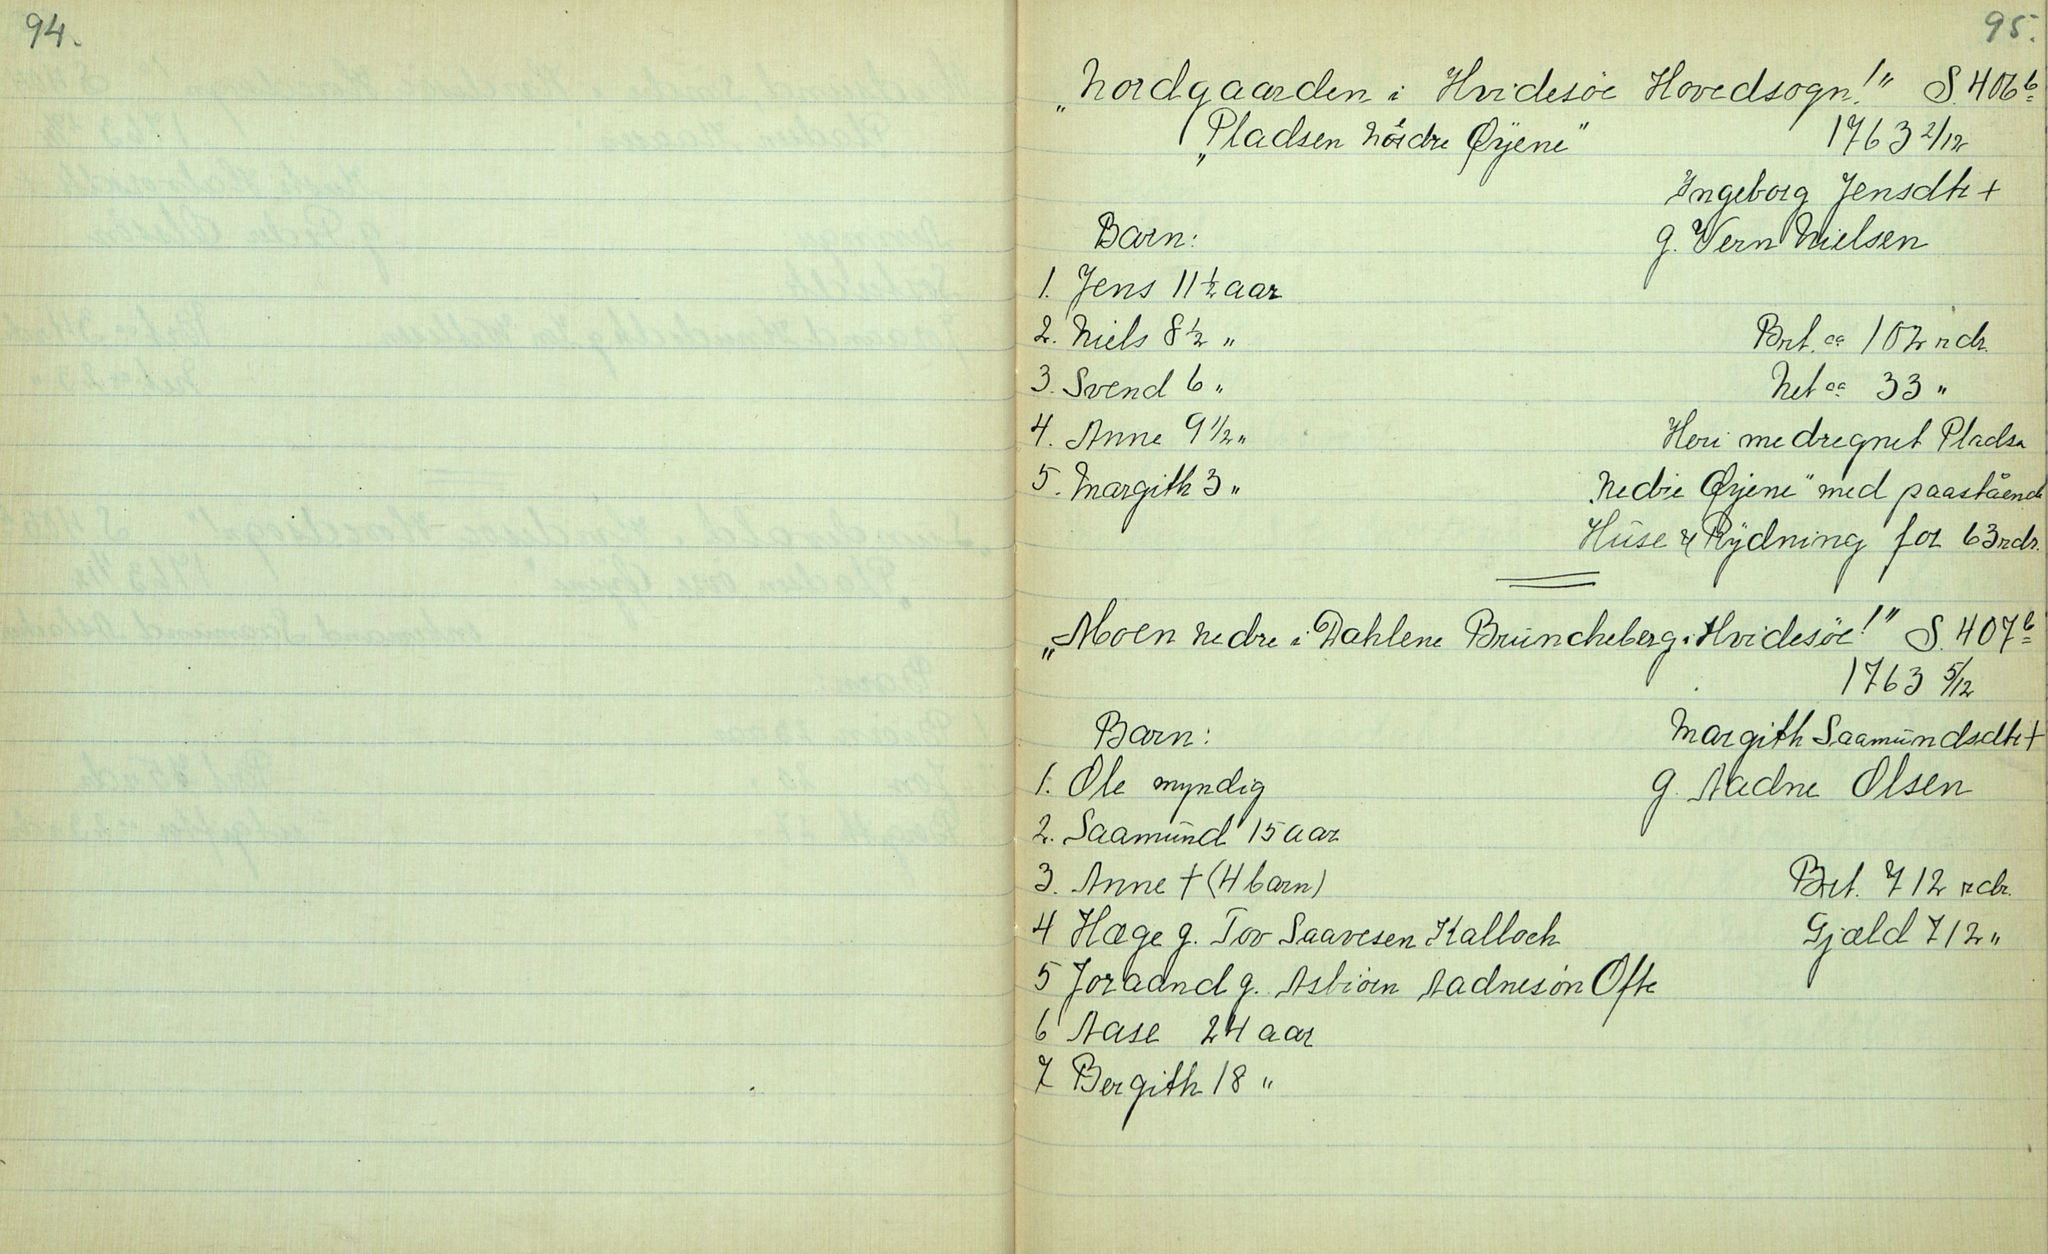 94.
95.
„Nordgaarden i Hvidesöe Hovedsogn!" S. 406 b
„Pladsen Nördre Øyene" 1763 2/12
Ingeborg Jensdtr +
Barn: g. Vern Nielsen
1. Jens 11 1/2 aar
2. Niels 8 1/2 " Brt. ca 102 rdr.
3. Svend 6 " Net ca 33 "
4. Anne 9 1/2 " Heri medregnet Pladsn
5. Margith 3 " „Nedre Øyene" med paastående
Huse & Rydning for 63 rdr.
„Moen nedre i Dahlene Bruncheberg i Hvidesöe!" S. 407 b
1763 5/12
Barn: Margith Saamundsdtr +
1. Ole myndig g. Aadne Olsen
2. Saamund 15 aar
3. Anne + (4 barn) Brt. 712 rdr.
4 Hæge g. Tov Saavesen Kalloch Gjæld 712 "
5 Joraand g. Asbiörn Aadnesön Ofte
6 Aase 24 aar
7 Bergith 18 "